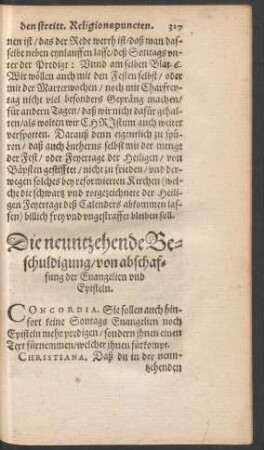 den streitt. Religionspuncten. 317
nen ist/das der Rede werth ist/daß man das-
selbe neben eynlauffen lasse/deß Sontags vn-
ter der Predigt: Vnnd am selben Blat &c.
Wir wöllen auch mit den Festen selbst/oder
mit der Marterwochen/noch mit Charfrey-
tag nicht viel besonders Gepräng machen/
für andern Tagen/daß wir nicht dafür gehal-
ten/als wolten wir CHRJstum auch weiter
verspotten. Darauß denn eigentlich zu spü-
ren/daß auch Lutherus selbst mit der menge
der Fest/oder Feyertage der Heiligen/von
Bäpsten gestifftet/nicht zu frieden/vnd der-
wegen solches bey reformierten Kirchen (wel-
che die schwartz vnd rotgezeichnete der Heili-
gen Feyertage deß Calenders abkommen las-
sen) billich frey vnd vngestraffet bleiben soll.
Die neuntzehende Be-
schuldigung/von abschaf-
fung der Euangelien vnd
Episteln.
CONCORDIA. Sie sollen auch hin-
fort keine Sontags Euangelien noch
Episteln mehr predigen/sondern jhnen einen
Text fürnemmen/welcher jhnen fürkompt.
CHRISTIANA. Daß du in der neun-
tzehenden